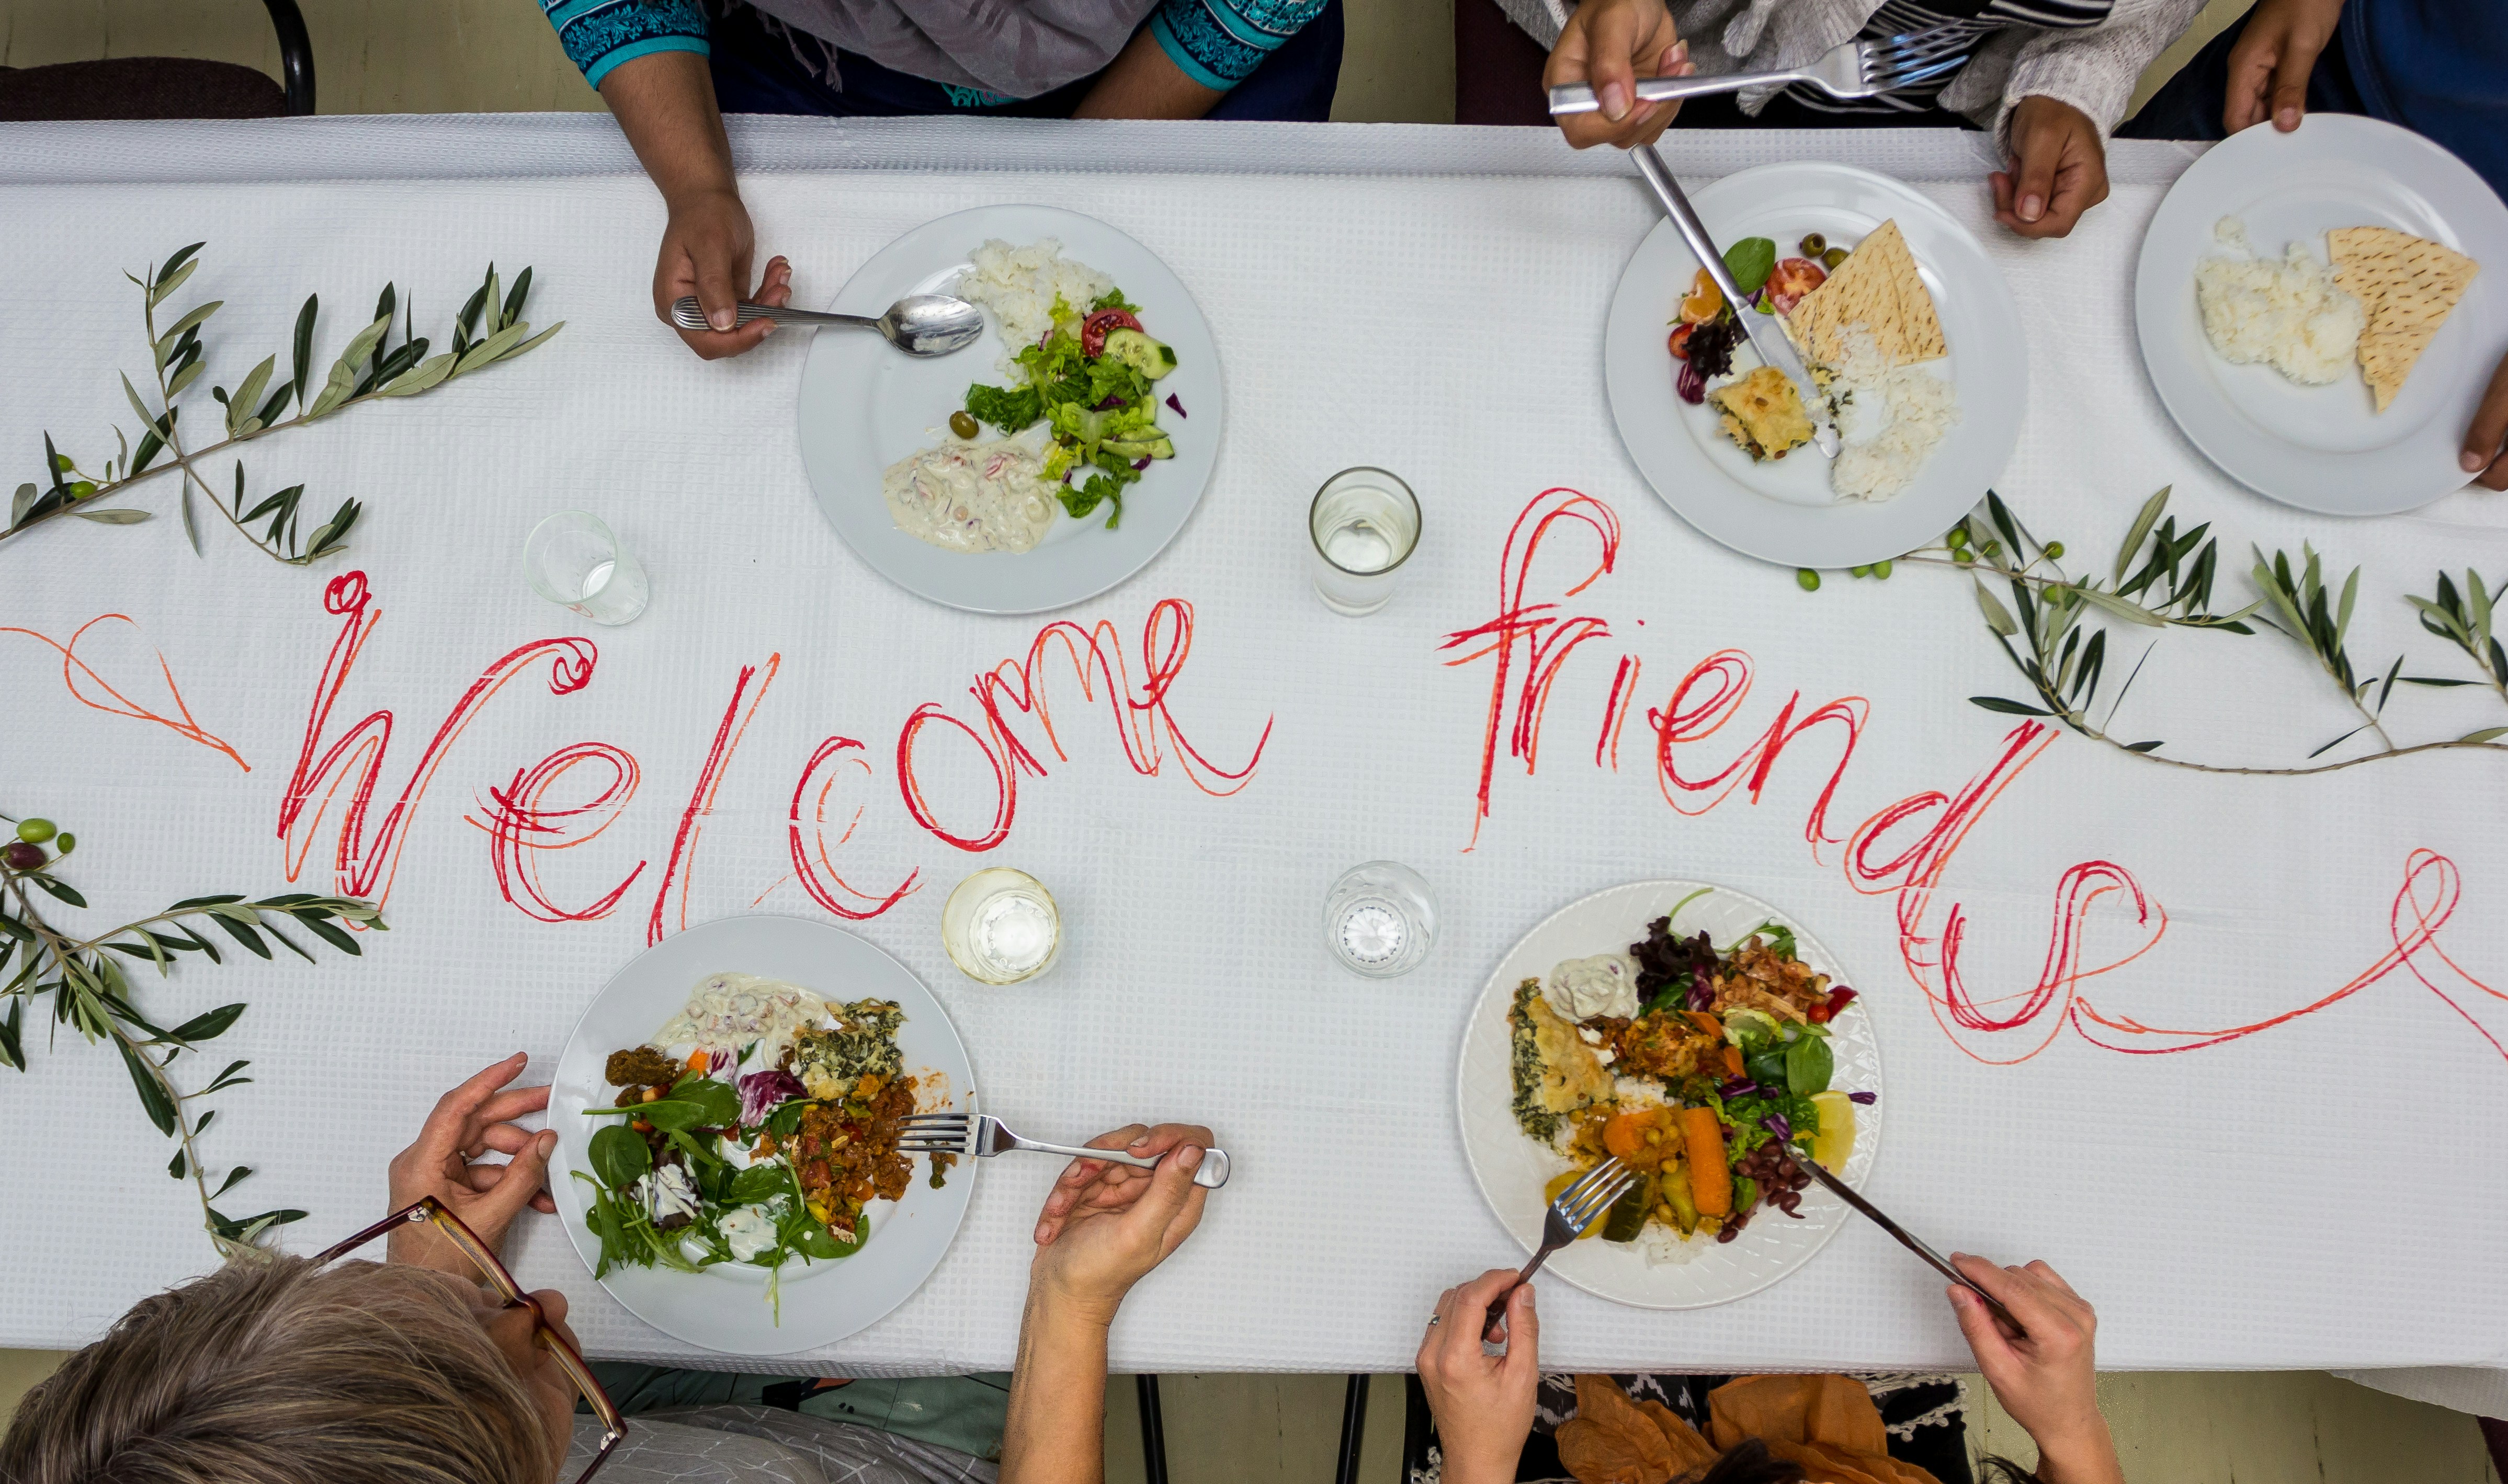 Welcome friends